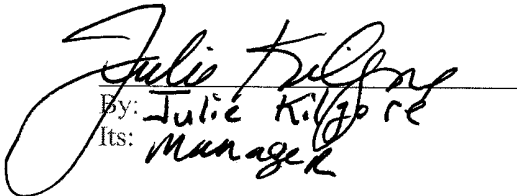 Julie Kilgore
By: Julie Kilgore
Its: Manager